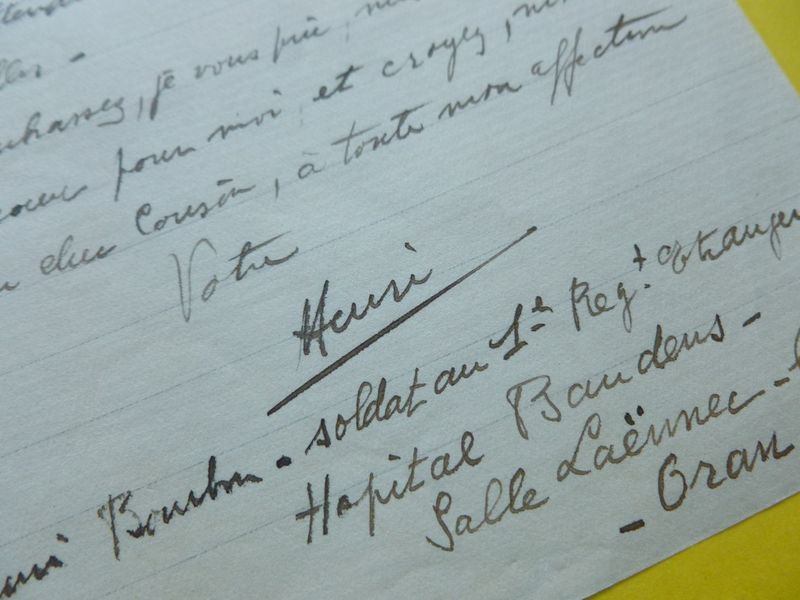 je vous prie,
pour moi, et croyez,
cher Cousin, à toute mon affection
Votre
Henri
Bourbon - soldat au 1er Regt. Etranger
Hopital Baudens -
Salle Laënnec -
- Oran